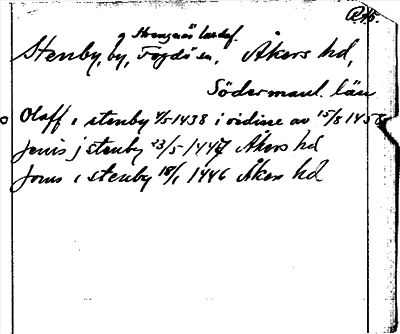 Strengnäs landsf.
Stenby, by, Fogdö sn, Åkers hd,
Södermanl. län
Olaff i stenby 4/5 1438 i vidisse av 15/8 1458
Jenis j stenby 23/5 1447 Åkers hd
Jons i stenby 18/1 1446 Åkers hd